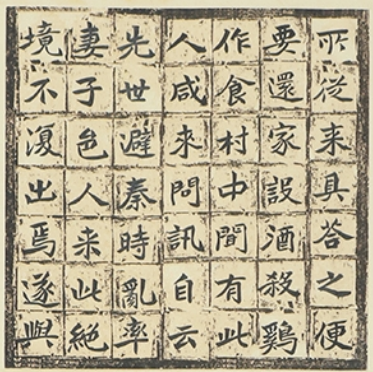 所從来具答之便
要還家設酒殺鷄
作食村中聞有此
人咸來問訊自云
先世避秦時亂率
妻子邑人来此絕
境不復出焉遂與